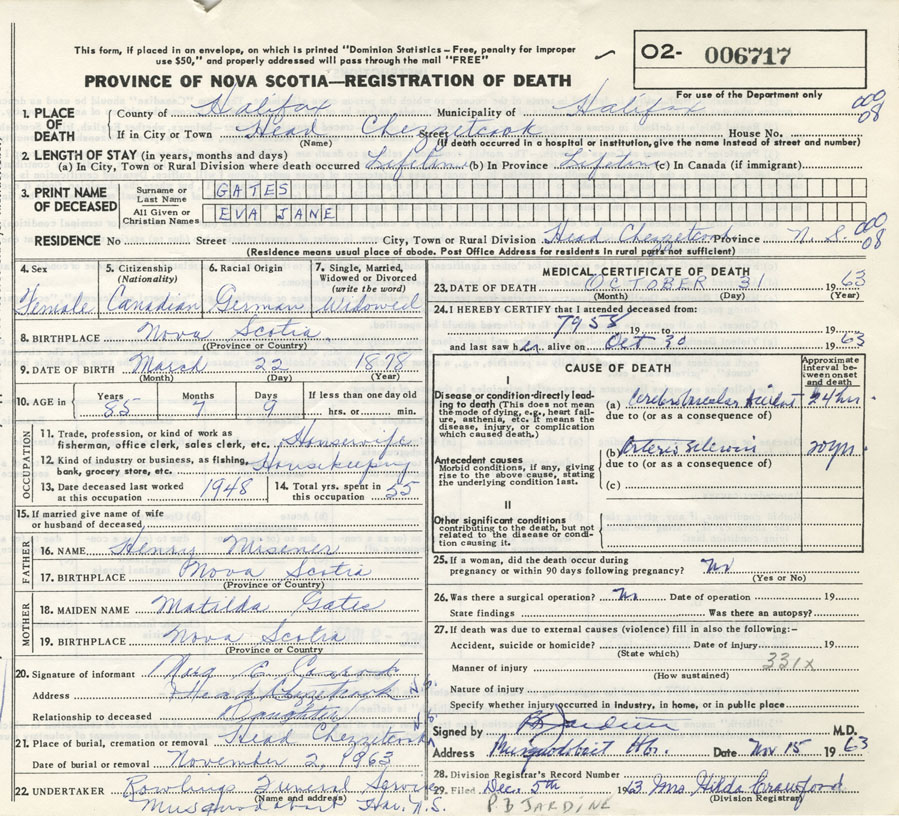 This form, if placed in an envelope, on which is printed "Dominion Statistics – Free, penalty for improper
use $50," and properly addressed will pass through the mail "FREE"
O2- 006717
For use of the Department only
PROVINCE OF NOVA SCOTIA—REGISTRATION OF DEATH
1. PLACE OF DEATH County of Halifax Municipality of Halifax 000 08
If in City or Town Head Chezzetcook Street House No.
(Name) (If death occurred in a hospital or institution, give the name instead of street and number)
2. LENGTH OF STAY (in years, months and days)
(a) In City, Town or Rural Division where death occurred Lifetim (b) In Province Lifetim (c) In Canada (if immigrant)
3. PRINT NAME OF DECEASED Surname or Last Name GATES
All Given or Christian Names EVA JANE
RESIDENCE No Street City, Town or Rural Division Head Chezzetcook Province N. S. 000 08
(Residence means usual place of abode. Post Office Address for residents in rural parts not sufficient)
4. Sex Female
5. Citizenship (Nationality) Canadian
6. Racial Origin German
7. Single, Married, Widowed or Divorced (write the word) Widowed
8. BIRTHPLACE Nova Scotia
(Province or Country)
9. DATE OF BIRTH March 22 1878
(Month) (Day) (Year)
10. AGE in Years 85 Months 7 Days 9 If less than one day old hrs. or min.
OCCUPATION
11. Trade, profession, or kind of work as
fisherman, office clerk, sales clerk, etc. Housewife
12. Kind of industry or business, as fishing,
bank, grocery store, etc. Housekeeping
13. Date deceased last worked at this occupation 1948
14. Total yrs. spent in this occupation 55
15. If married give name of wife
or husband of deceased
FATHER
16. NAME Henry Misener
17. BIRTHPLACE Nova Scotia
(Province or Country)
MOTHER
18. MAIDEN NAME Matilda Gates
19. BIRTHPLACE Nova Scotia
(Province or Country)
20. Signature of informant
Address Head Chezzetcook N.S.
Relationship to deceased Daughter
21. Place of burial, cremation or removal Head Chezzetcook N.S.
Date of burial or removal November 2, 1963
22. UNDERTAKER Rowlings Funeral Service
(Name and address)
Musquodoboit Har. N.S.
MEDICAL CERTIFICATE OF DEATH
23. DATE OF DEATH OCTOBER 31 1963
(Month) (Day) (Year)
24. I HEREBY CERTIFY that I attended deceased from:
1958 19 to 19
and last saw her alive on Oct 30 1963
CAUSE OF DEATH
Approximate interval between onset and death
I
Disease or condition directly leading to death (This does not mean the mode of dying, e.g., heart failure, asthenia, etc. It means the disease, injury, or complication which caused death.)
(a) Cerebrovascular Accident 24 hrs
due to (or as a consequence of)
Antecedent causes
Morbid conditions, if any, giving rise to the above cause, stating the underlying condition last.
(b) 20 yrs.
due to (or as a consequence of)
(c)
II
Other significant conditions
contributing to the death, but not related to the disease or condition causing it.
25. If a woman, did the death occur during
pregnancy or within 90 days following pregnancy? No
(Yes or No)
26. Was there a surgical operation? No Date of operation 19
State findings Was there an autopsy?
27. If death was due to external causes (violence) fill in also the following:–
Accident, suicide or homicide? Date of injury 19
(State which)
331x
Manner of injury
(How sustained)
Nature of injury
Specify whether injury occurred in industry, in home, or in public place
Signed by PB Jardine M.D.
Address Musquodoboit Hbr. Date Nov 15 1963
28. Division Registrar's Record Number
29. Filed Dec. 5th 1963 Mrs Hilda Crawford
(Division Registrar)
P B JARDINE